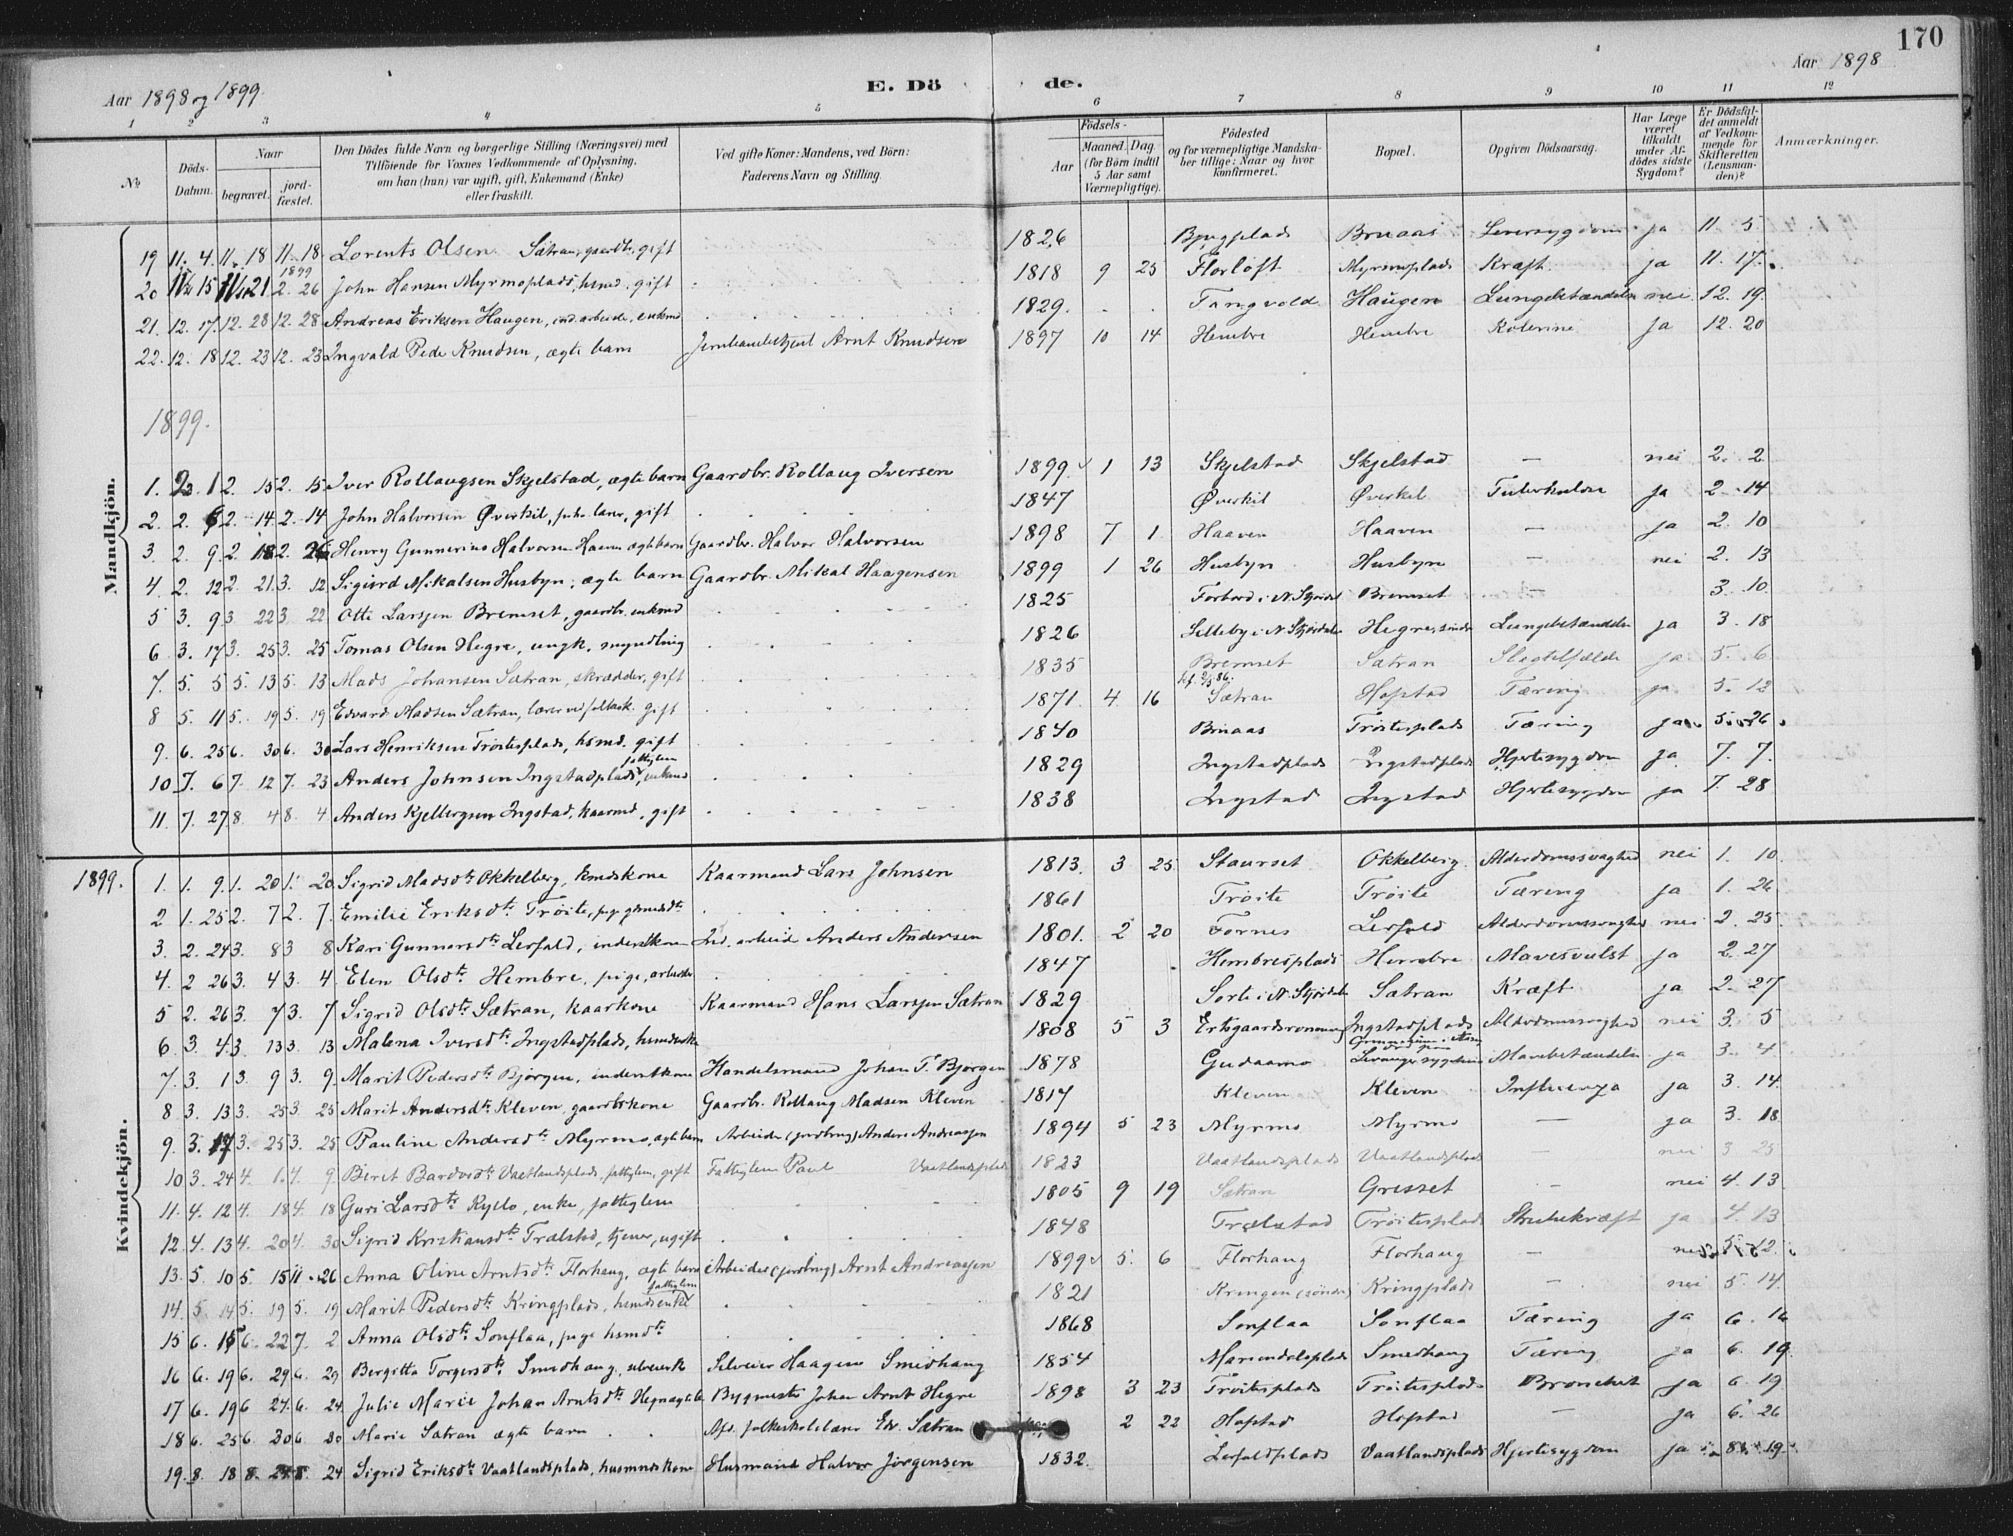 170
Aar 1898 og 1899.
E. Dö de.
Aar 1898
1 2 3 4 5 6 7 8 9 10 11 12
No
Döds-Datum.
Naar begravet. jord-fæstet.
Den Dödes fulde Navn og borgerlige Stilling (Næringsvei) med Tilföiende for Voxnes Vedkommende af Oplysning, om han (hun) var ugift, gift, Enkemand (Enke) eller fraskilt.
Ved gifte Koner: Mandens, ved Börn: Faderens Navn og Stilling.
Födsels-
Aar
Maaned. Dag (for Börn indtil 5 Aar samt Værnepligtige).
Födested og for værnepligtige Mandskaber tillige: Naar og hvor konfirmeret.
Bopæl.
Opgiven Dödsaarsag.
Har Læge været tilkaldt under Afdödes sidste Sygdom?
Er Dödsfaldet anmeldt af Vedkommende for Skifteretten (Lensmanden)?
Anmærkninger.
Mandkjön.
19 11. 4. 11. 18 11. 18 Lorents Olsen Sætran, gaardbr. gift 1826 Bjugplads Bruaas Leversygdom ja 11. 5
20 15 21 1899 2. 26 John Hansen Myrmoplads, hsmd. gift 1818 9 25 Florloft Myrmoplads Kræft ja 11. 17.
21. 12. 17. 12. 28 12. 28 Andreas Eriksen Haugen, ind. arbeider, enkmd 1829. Tangvold Haugen Lungebetændelse nei 12. 19.
22. 12. 18 12. 23 12. 23 Ingvald Peder Knudsen, ægte barn Jernbanebetjent Arnt Knudsen 1897 10 14 Hembre Hembre Kolerine ja 12. 20
1899.
1. 2. 1 2. 15 2. 15 Iver Rollaugsen Skjelstad, ægte barn Gaardbr. Rollaug Iversen 1899 1 13 Skjelstad Skjelstad — nei 2. 2
2. 2. 6 2. 14 2. 14 John Halvorsen Øverkil, gift 1847 Øverkil Øverkil Tuberkulose ja 2. 14
3. 2. 9. 2. 18 2. 26 Henry Gunnerius Halvorsen Haaven ægte barn Gaardbr. Halvor Halvorsen 1898 7 1. Haaven Haaven — ja 2. 10
4 2. 12 2. 21. 3. 12 Sigurd Mikalsen Husbyn, ægte barn Gaardbr. Mikal Haagensen 1899 1 26 Husbyn Husbyn — nei 2. 13
5 3. 9 3. 22 3. 22 Otte Larssen Bremset, gaardbr. enkmd 1825 Forbord i N. Stjørdal Bremset — 3. 10.
6 3. 17 3. 25 3. 25 Tomas Olsen Hegre, ungk. myndling 1826 Selleby i N. Stjørdalen Hegre, Lungebetændelse ja 3. 18
7. 5. 5 5. 13 5. 13 Mads Johansen Sætran, skrædder, gift 1835 Bremset Sætran Slagtilfælde ja 5. 6
8 5. 11 5. 19 5. 19 Edvard Madsen Sætran, lærer ved folkesk. gift 1871. 4. 16 Sætran Hopstad Tæring ja 5. 12
9. 6. 25 6. 30 6. 30 Lars Henriksen Trøitesplads, hsmd. gift 1840 Bruaas Trøitesplads Tæring ja 5. 26
10 7. 6 7. 12 7. 23 Anders Johnsen Ingstadplads, fattiglem enkmd 1829 Ingstadplads Ingstadplads Hjertesygdom ja 7. 7.
11. 7. 27 8. 4 8. 4 Anders Kjellergsen Ingstad, kaarmd, gift 1838 Ingstad Ingstad Hjertesygdom ja 7. 28
Kvindekjön.
1899. 1. 1. 9 1. 20 1. 20 Sigrid Madsdtr Okkelberg, hsmdskone Kaarmand Lars Johnsen 1813. 3 25 Staurset Okkelberg. Alderdomssvaghed nei 1. 10.
2 1. 25 2. 7 2. 7. Emilie Eriksdtr Trøite, pige 1861 Trøite Trøite Tæring ja 1. 26
3. 2. 24 3. 8 3 8 Kari Gunnarsdtr Lerfald, inderstkone Ind. arbeid Anders Andersen 1801. 2 20 Fornes Lerfald Alderdomssvaghed nei 2. 25.
4. 2 26 3. 4 3. 4 Elen Olsdtr Hembre, pige, arbeider 1847 Hembresplads Hembre Mavesvulst ja 2. 27
5 2. 26 3. 7 3. 7 Sigrid Olsdtr Sætran, kaarkone Kaarmand Hans Larssen Sætran 1829 Sorte i N. Stjørdalen Sætran Kræft ja 2. 27
6 3. 4 3. 13 3. 13 Malena Iversdtr Ingstadplads, 1808 5 3 Ingstadplads Alderdomssvaghed nei 3. 5
7. 3. 1 3. 9 3. 9. Marit Pedersdtr Bjørgen, inderstkone Handelsmand Johan P. Bjørgen 1878 Gudaamo Levanger sygehus Mavebetændelse ja 3. 4
8 3. 13 3. 25 3. 25 Marit Andersdtr Kleven, gaardbrkone Gaardbr. Rollaug Madsen Kleven 1817 Kleven Kleven Influenza ja 3. 14.
9. 3. 17 3. 25 3. 25 Pauline Andersdtr Myrmo, ægte barn Arbeider (jordbrug) Anders Andreassen 1894 5 23 Myrmo Myrmo — ja 3. 18.
10 3. 24 4. 1. 4. 9. Beret Bardosdtr Vaatlandsplads, fattiglem, gift Fattiglem Paul Vaatlandsplads 1823 Vaatlandsplads Vaatlandsplads — nei 3 25
11. 4. 12 4. 18 4. 18 Guri Larsdtr Kyelo, enke, fattiglem 1805 9 19 Sætran Gresset nei 4. 13
12. 4. 13 4. 20 4. 30 Sigrid Kristiansdtr Trælstad, tjener, ugift 1848 Trælstad Trøitesplads Strubekræft ja 4. 13
13. 5. 10 5. 15 11. 26 Anna Oline Arntsdtr Florhaug, ægte barn Arbeider (jordbrug) Arnt Andreassen 1899 5. 6 Florhaug Florhaug — nei 5. 12.
14. 5. 14 5. 19 5. 19 Marit Pedersdtr Kringplads, hsmdsenke fattiglem 1821 Kringen (søndre) Kringplads — nei 5. 14.
15 6. 15 6. 22 7. 2 Anna Olsdtr Sonflaa, pige hsmdtr 1868 Sonflaa Sonflaa Tæring ja 6. 16
16 6. 19 6. 29 6. 29 Bergitta Torgersdtr Smedhaug, Selveier Haagen Smedhaug 1854 Mariendalsplads Smedhaug Tæring ja 6. 19
17 6. 19 6 24. 6. 24. Julie Marie Johan Arntsdtr Hegre Bygmester Johan Arnt Hegre 1898 3 23 Trøitesplads Trøitesplads Bronchit ja 6. 19
18 6. 25 6. 30 6. 30 Marie Sætran ægte barn Afd. folkeskolelærer Edv. Sætran 2 22 Hopstad Hopstad — ja 6. 26
19. 8. 18 8. 24 8. 24 Sigrid Eriksdtr Vaatlandsplads, husmandskone Husmand Halvor Jørgensen 1832. Lerfaldplads Vaatlandsplads Hjertesygdom ja 8. 19.